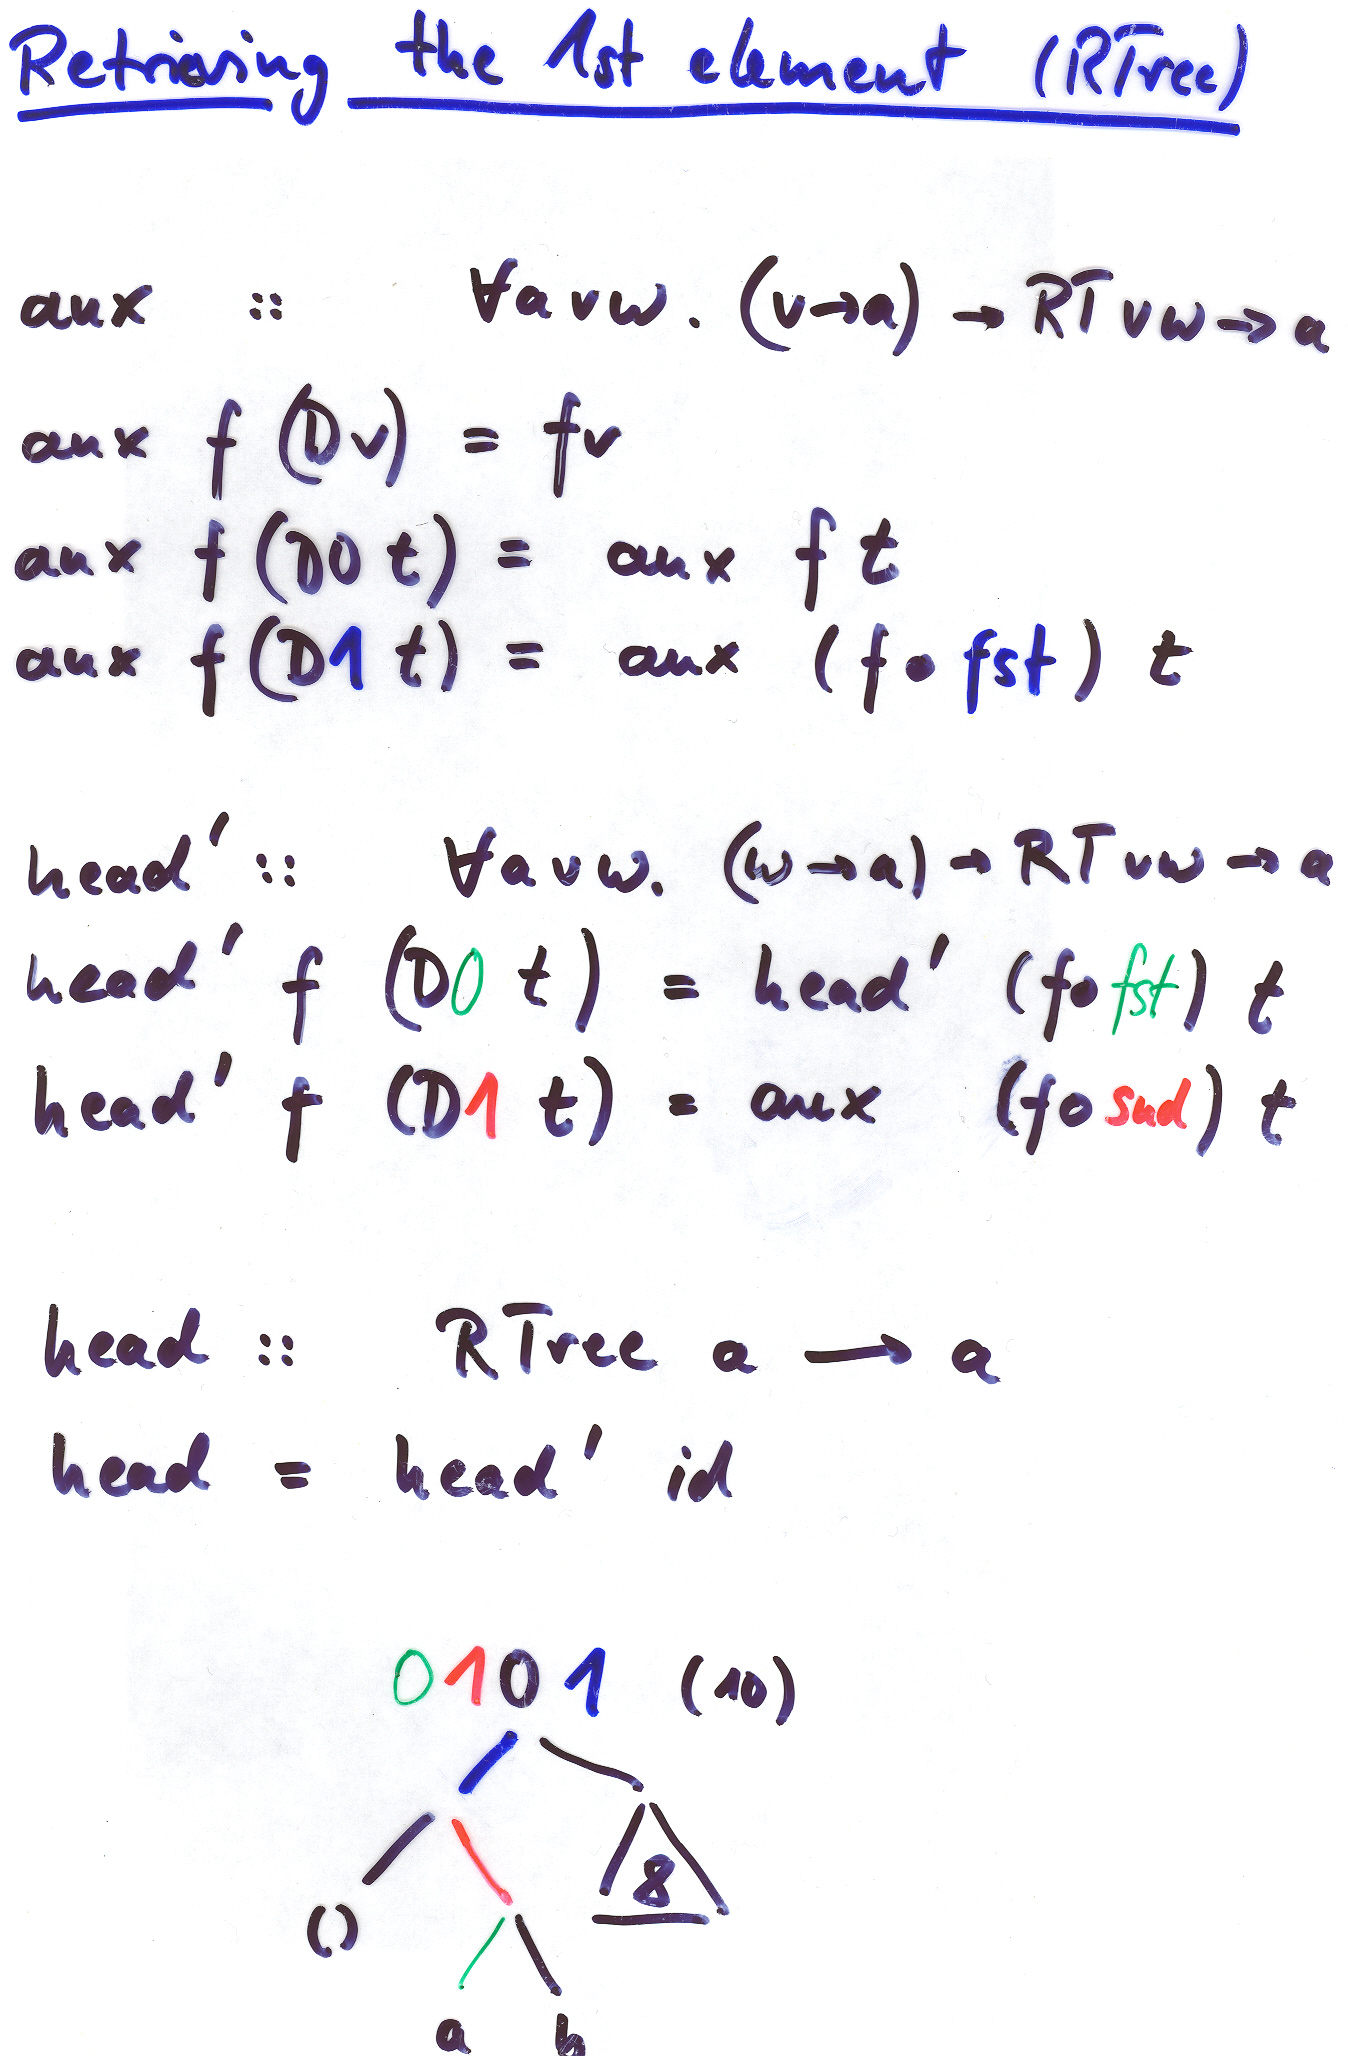 Retrieving the 1st element (RTree)
aux :: ∀a v w. (v → a) → RT v w → a
aux f (D v) = f v
aux f (D0 t) = aux f t
aux f (D1 t) = aux (f ∘ fst) t
head' :: ∀a v w. (w → a) → RT v w → a
head' f (D0 t) = head' (f ∘ fst) t
head' f (D1 t) = aux (f ∘ snd) t
head :: RTree a → a
head = head' id
0101 (10)
8
()
a b